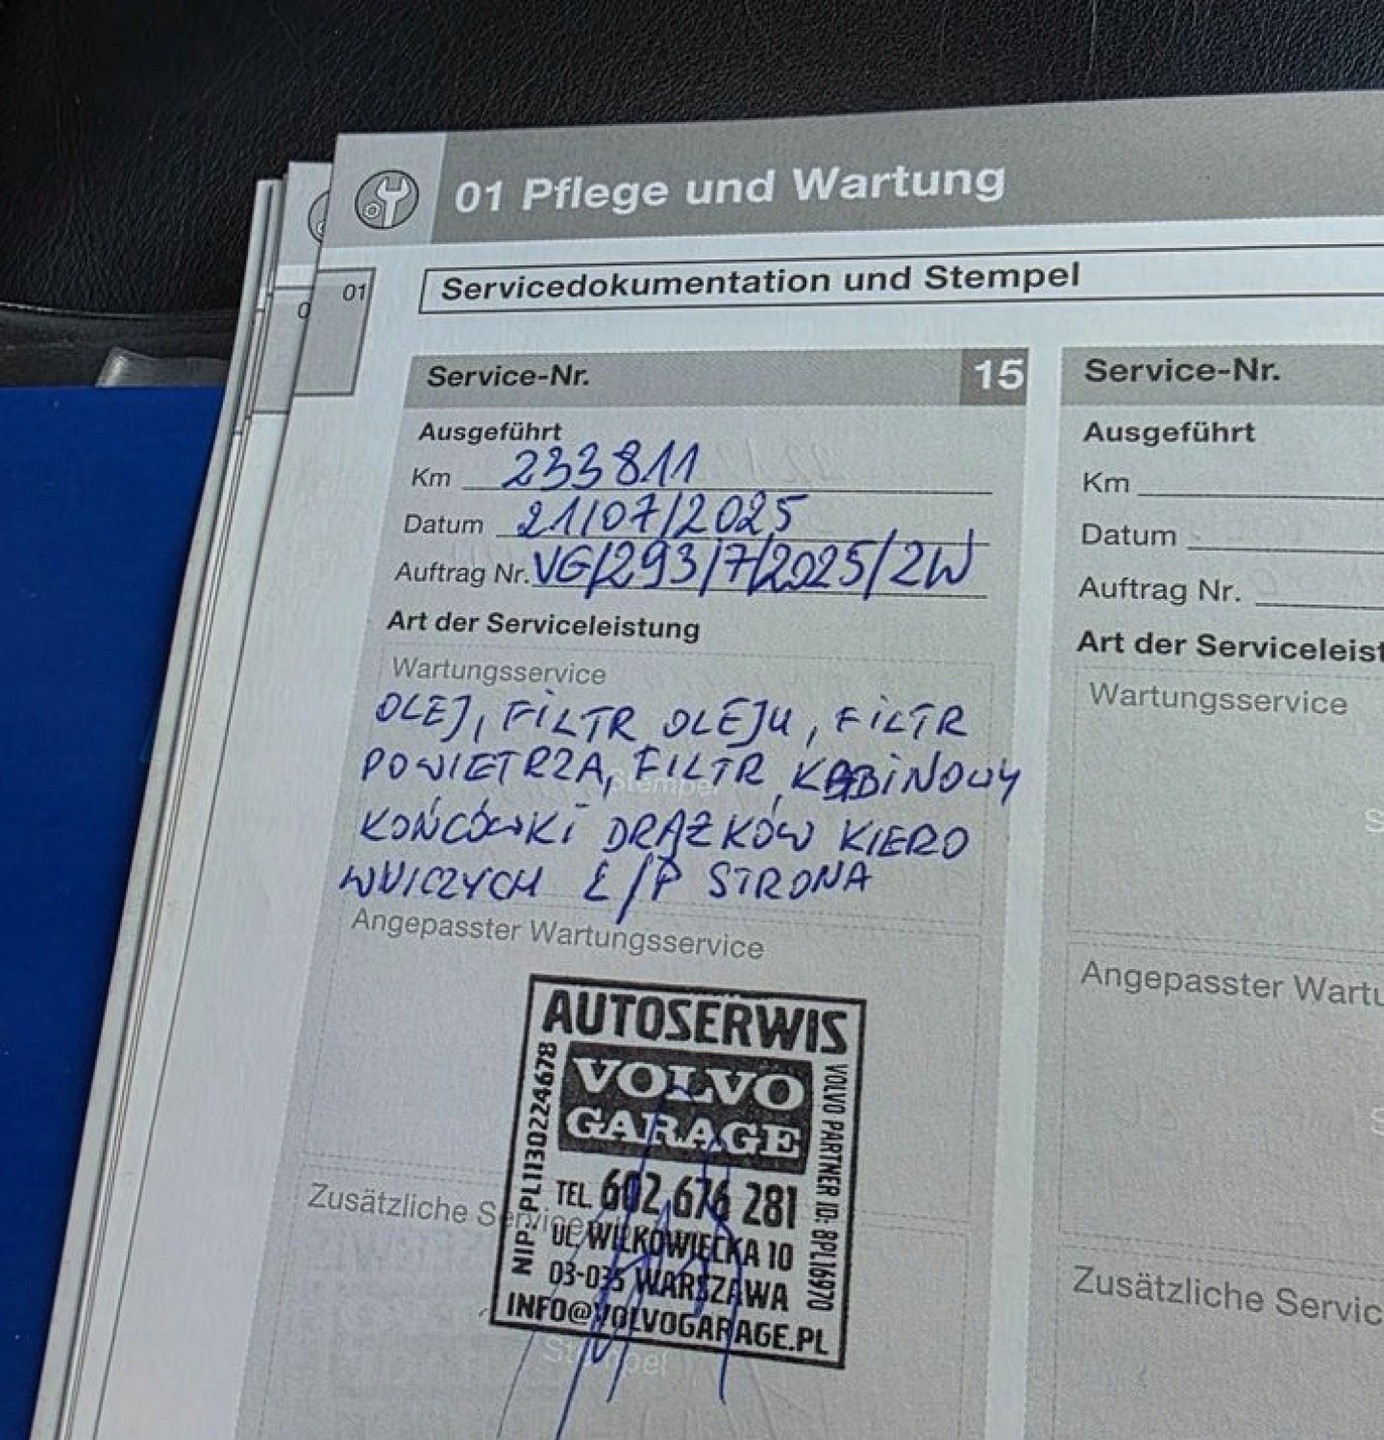 01 Pflege und Wartung
01
Servicedokumentation und Stempel
Service-Nr. 15
Ausgeführt
Km 233811
Datum 21/07/2025
Auftrag Nr. VG/293/7/2025/2W
Art der Serviceleistung
Wartungsservice
OLEJ, FILTR OLEJU, FILTR
POWIETRZA, FILTR KABINOWY
Stempel
KOŃCÓWKI DRĄŻKÓW KIERO
WNICZYCH L/P STRONA
Angepasster Wartungsservice
AUTOSERWIS
VOLVO
GARAGE
TEL. 602 676 281
UL. WILKOWIECKA 10
03-035 WARSZAWA
INFO@VOLVOGARAGE.PL
NIP: PL1130224678
VOLVO PARTNER ID: BPL16970
Zusätzliche Service
Stempel
Service-Nr.
Ausgeführt
Km
Datum
Auftrag Nr.
Art der Serviceleist
Wartungsservice
Angepasster Wartu
Zusätzliche Servic